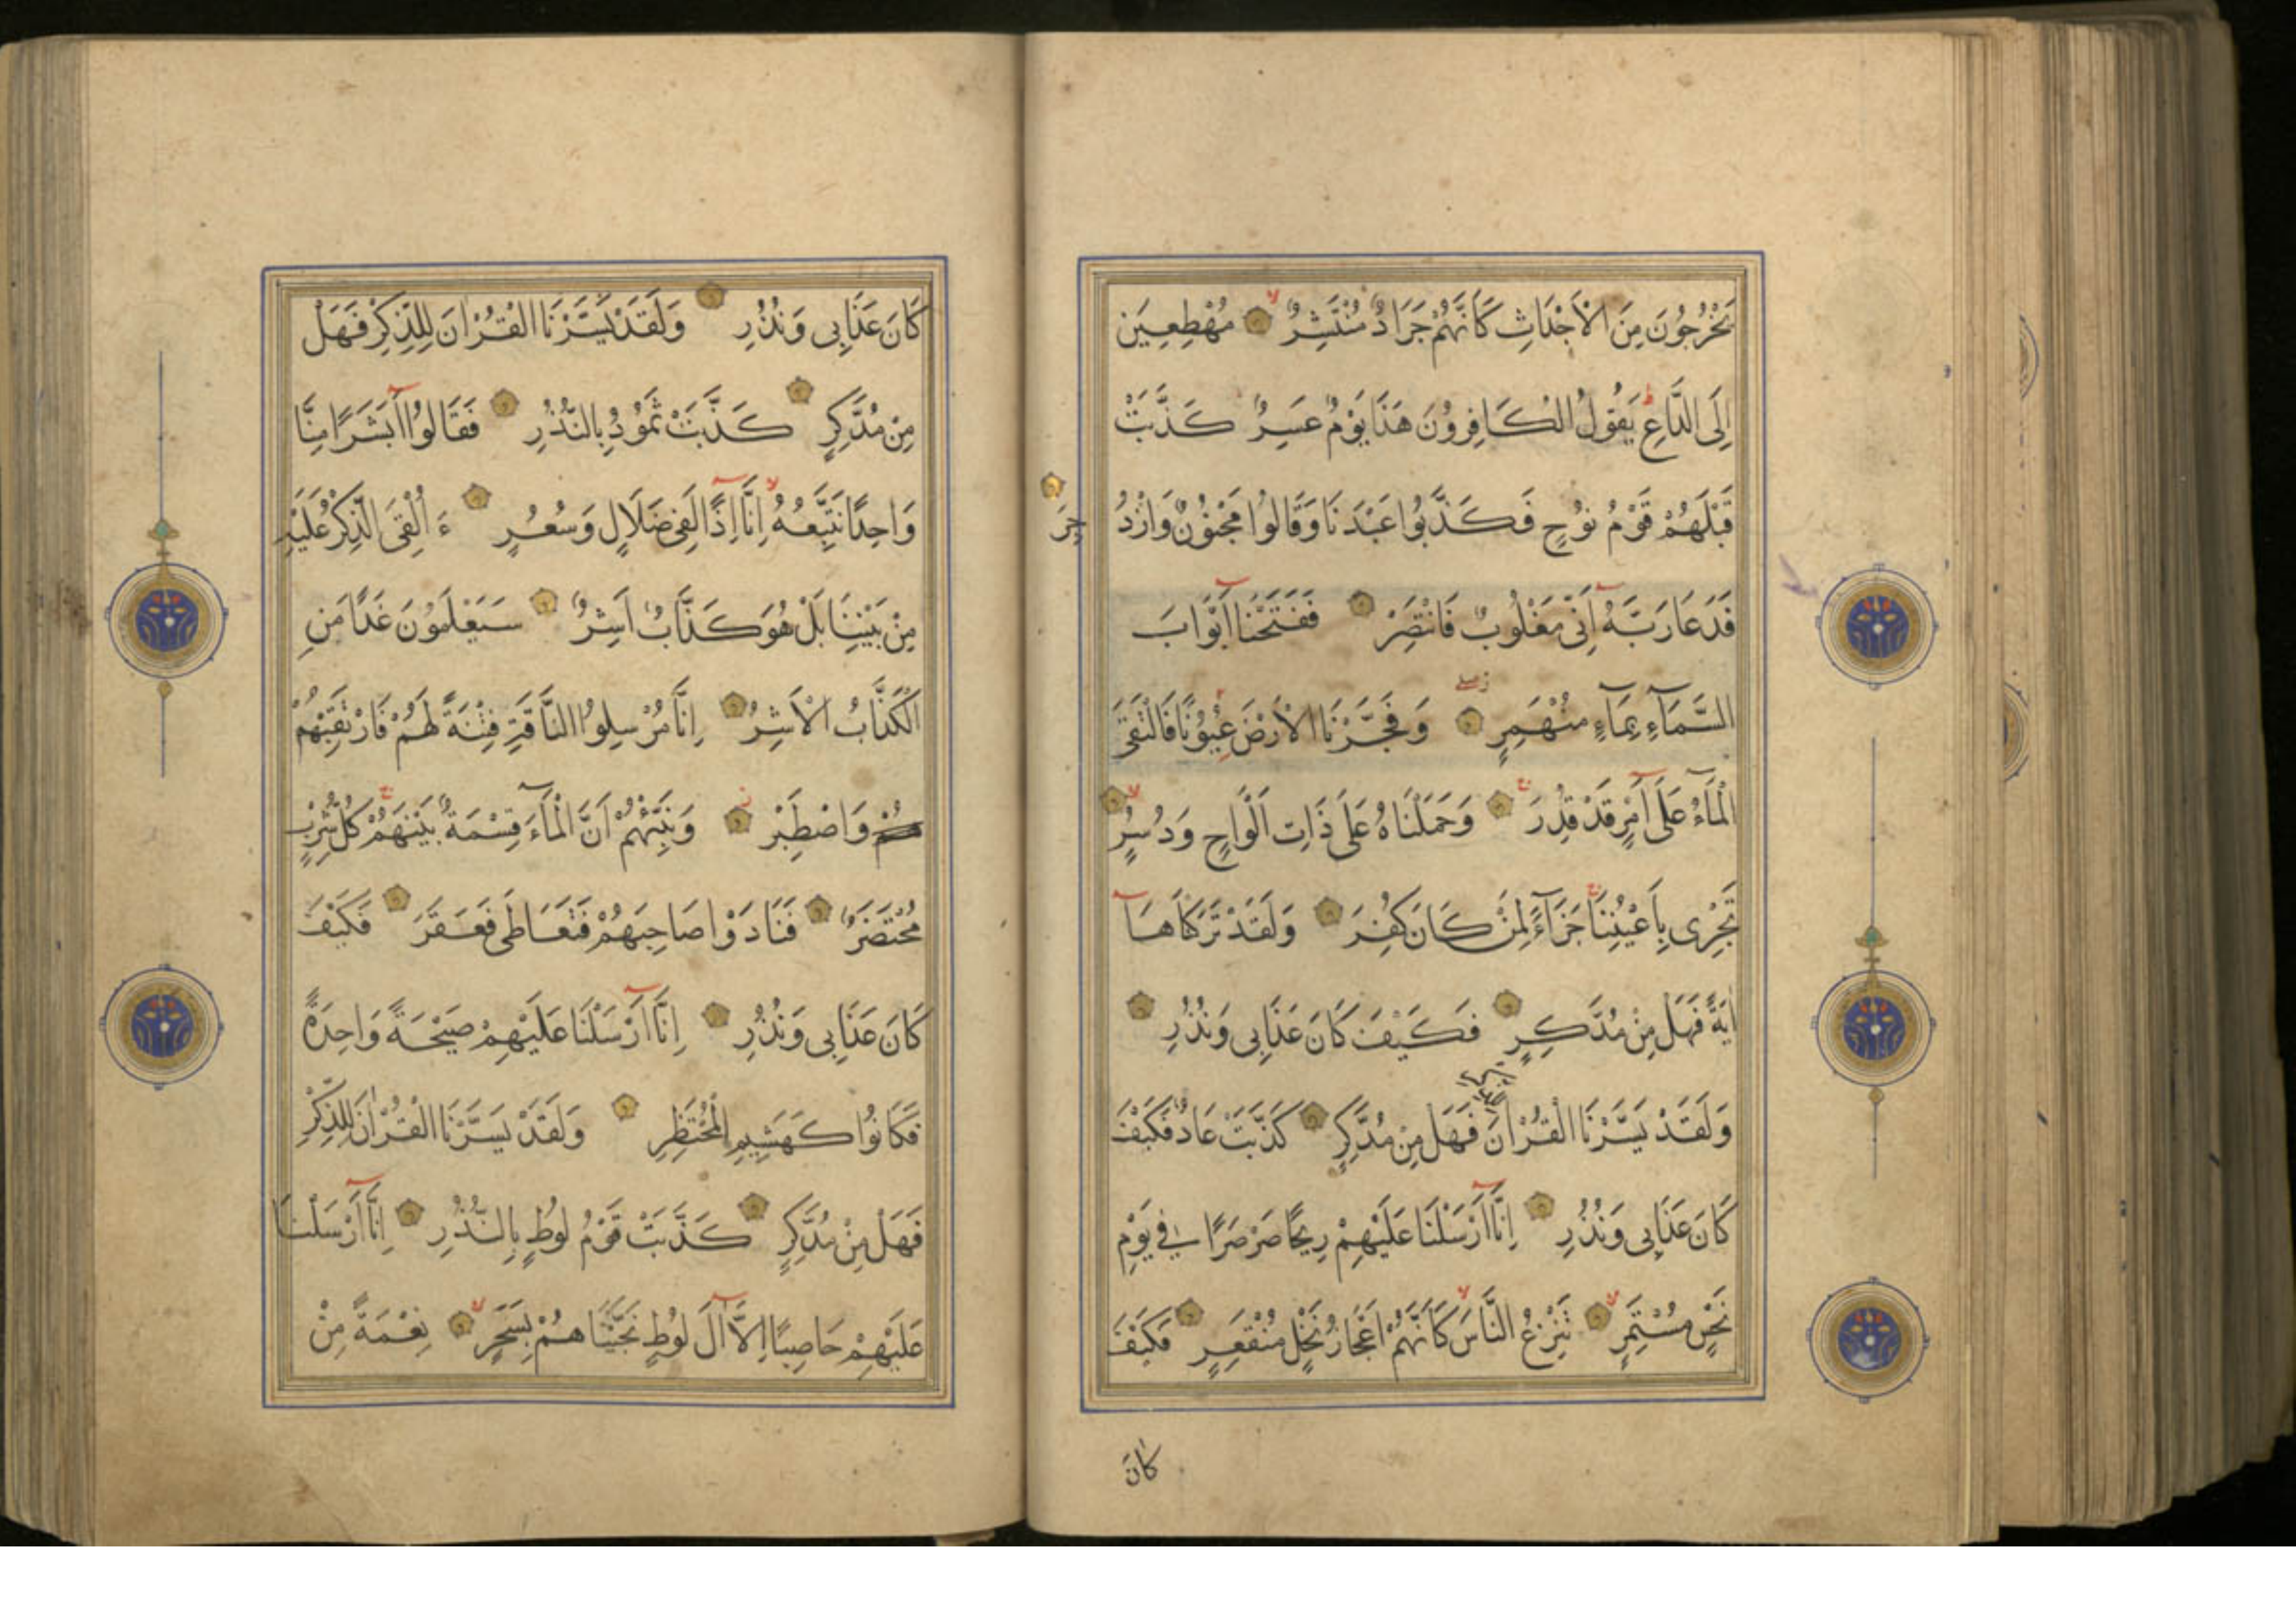 يَخْرُجُونَ مِنَ الْاَجْدَاثِ كَاَنَّهُمْ جَرَادٌ مُنْتَشِرٌ مُهْطِعِينَ
اِلَى الدَّاعِ يَقُولُ الْكَافِرُونَ هَذَا يَوْمٌ عَسِرٌ كَذَّبَتْ
قَبْلَهُمْ قَوْمُ نُوحٍ فَكَذَّبُوا عَبْدَنَا وَقَالُوا مَجْنُونٌ وَازْدُ
جِرَ
فَدَعَا رَبَّهُ اَنِّى مَغْلُوبٌ فَانْتَصِرْ فَفَتَحْنَا اَبْوَابَ
السَّمَآءِ بِمَآءٍ مُنْهَمِرٍ وَفَجَّرْنَا الْاَرْضَ عُيُونًا فَالْتَقَى
الْمَآءُ عَلَى اَمْرٍ قَدْ قُدِرَ وَحَمَلْنَاهُ عَلَى ذَاتِ اَلْوَاحٍ وَدُسُرٍ
تَجْرِى بِاَعْيُنِنَا جَزَآءً لِمَنْ كَانَ كُفِرَ وَلَقَدْ تَرَكْنَاهَا
اٰيَةً فَهَلْ مِنْ مُدَّكِرٍ فَكَيْفَ كَانَ عَذَابِى وَنُذُرِ
للذكر
وَلَقَدْ يَسَّرْنَا الْقُرْاٰنَ فَهَلْ مِنْ مُدَّكِرٍ كَذَّبَتْ عَادٌ فَكَيْفَ
كَانَ عَذَابِى وَنُذُرِ اِنَّا اَرْسَلْنَا عَلَيْهِمْ رِيحًا صَرْصَرًا فِى يَوْمِ
نَحْسٍ مُسْتَمِرٍّ تَنْزِعُ النَّاسَ كَاَنَّهُمْ اَعْجَازُ نَخْلٍ مُنْقَعِرٍ فَكَيْفَ
كَانَ
كَانَ عَذَابِى وَنُذُرِ وَلَقَدْ يَسَّرْنَا الْقُرْاٰنَ لِلذِّكْرِ فَهَلْ
مِنْ مُدَّكِرٍ كَذَّبَتْ ثَمُودُ بِالنُّذُرِ فَقَالُوا اَبَشَرًا مِنَّا
وَاحِدًا نَتَّبِعُهُ اِنَّا اِذًا لَفِى ضَلَالٍ وَسُعُرٍ ءَاُلْقِىَ الذِّكْرُ عَلَيْهِ
مِنْ بَيْنِنَا بَلْ هُوَ كَذَّابٌ اَشِرٌ سَيَعْلَمُونَ غَدًا مَنِ
الْكَذَّابُ الْاَشِرُ اِنَّا مُرْسِلُوا النَّاقَةِ فِتْنَةً لَهُمْ فَارْتَقِبْهُمْ
وَاصْطَبِرْ وَنَبِّئْهُمْ اَنَّ الْمَآءَ قِسْمَةٌ بَيْنَهُمْ كُلُّ شِرْبٍ
مُحْتَضَرٌ فَنَادَوْا صَاحِبَهُمْ فَتَعَاطَى فَعَقَرَ فَكَيْفَ
كَانَ عَذَابِى وَنُذُرِ اِنَّا اَرْسَلْنَا عَلَيْهِمْ صَيْحَةً وَاحِدَةً
فَكَانُوا كَهَشِيمِ الْمُحْتَظِرِ وَلَقَدْ يَسَّرْنَا الْقُرْاٰنَ لِلذِّكْرِ
فَهَلْ مِنْ مُدَّكِرٍ كَذَّبَتْ قَوْمُ لُوطٍ بِالنُّذُرِ اِنَّا اَرْسَلْنَا
عَلَيْهِمْ حَاصِبًا اِلَّا اٰلَ لُوطٍ نَجَّيْنَاهُمْ بِسَحَرٍ نِعْمَةً مِنْ